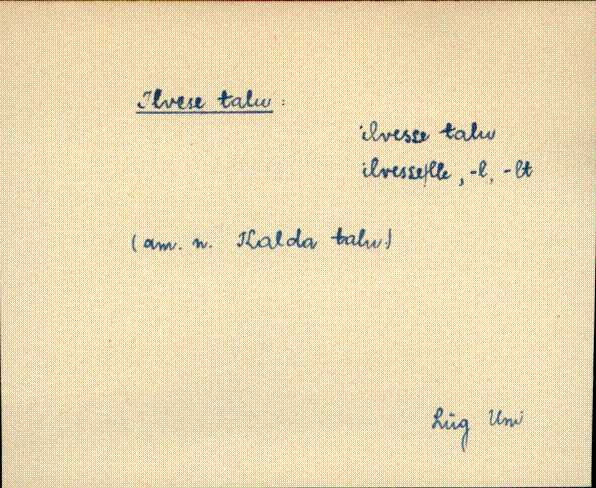 Ilvese talu :
ilvesse talu
ilvesse|lle, -l, -lt
(am. n. Kalda talu)
Lüg Uni